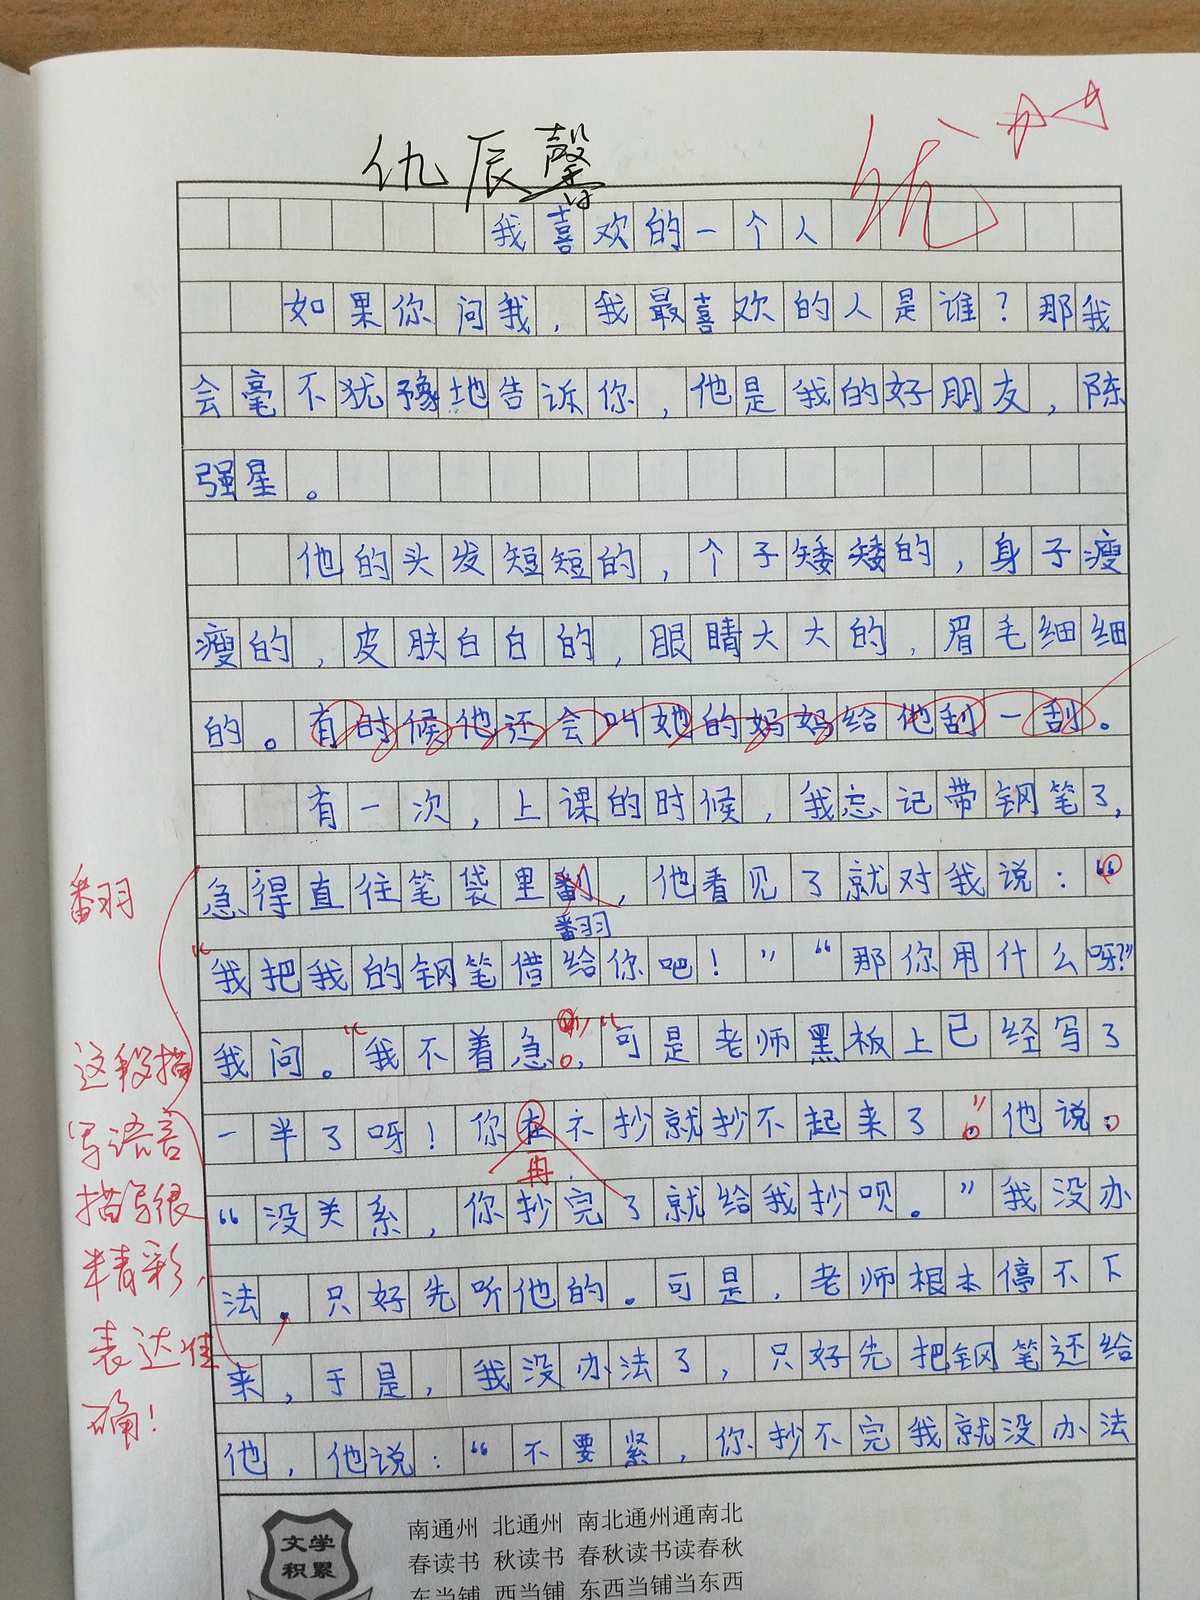 仇辰馨
优
我喜欢的一个人
如果你问我，我最喜欢的人是谁？那我
会毫不犹豫地告诉你，他是我的好朋友，陈
强星。
他的头发短短的，个子矮矮的，身子瘦
瘦的，皮肤白白的，眼睛大大的，眉毛细细
的。有时候他还会叫她的妈妈给他刮一刮。
有一次，上课的时候，我忘记带钢笔了，
翻
急得直往笔袋里翻，他看见了就对我说：“
翻
“我把我的钢笔借给你吧！”“那你用什么呀？”
我问。“我不着急。”“可是老师黑板上已经写了
一半了呀！你在不抄就抄不起来了。”他说：
再
“没关系，你抄完了就给我抄呗。”我没办
法，只好先听他的。可是，老师根本停不下
来，于是，我没办法了，只好先把钢笔还给
他，他说：“不要紧，你抄不完我就没办法
这段描
写语言
描写很
精彩，
表达准
确！
文学
积累
南通州 北通州 南北通州通南北
春读书 秋读书 春秋读书读春秋
东当铺 西当铺 东西当铺当东西